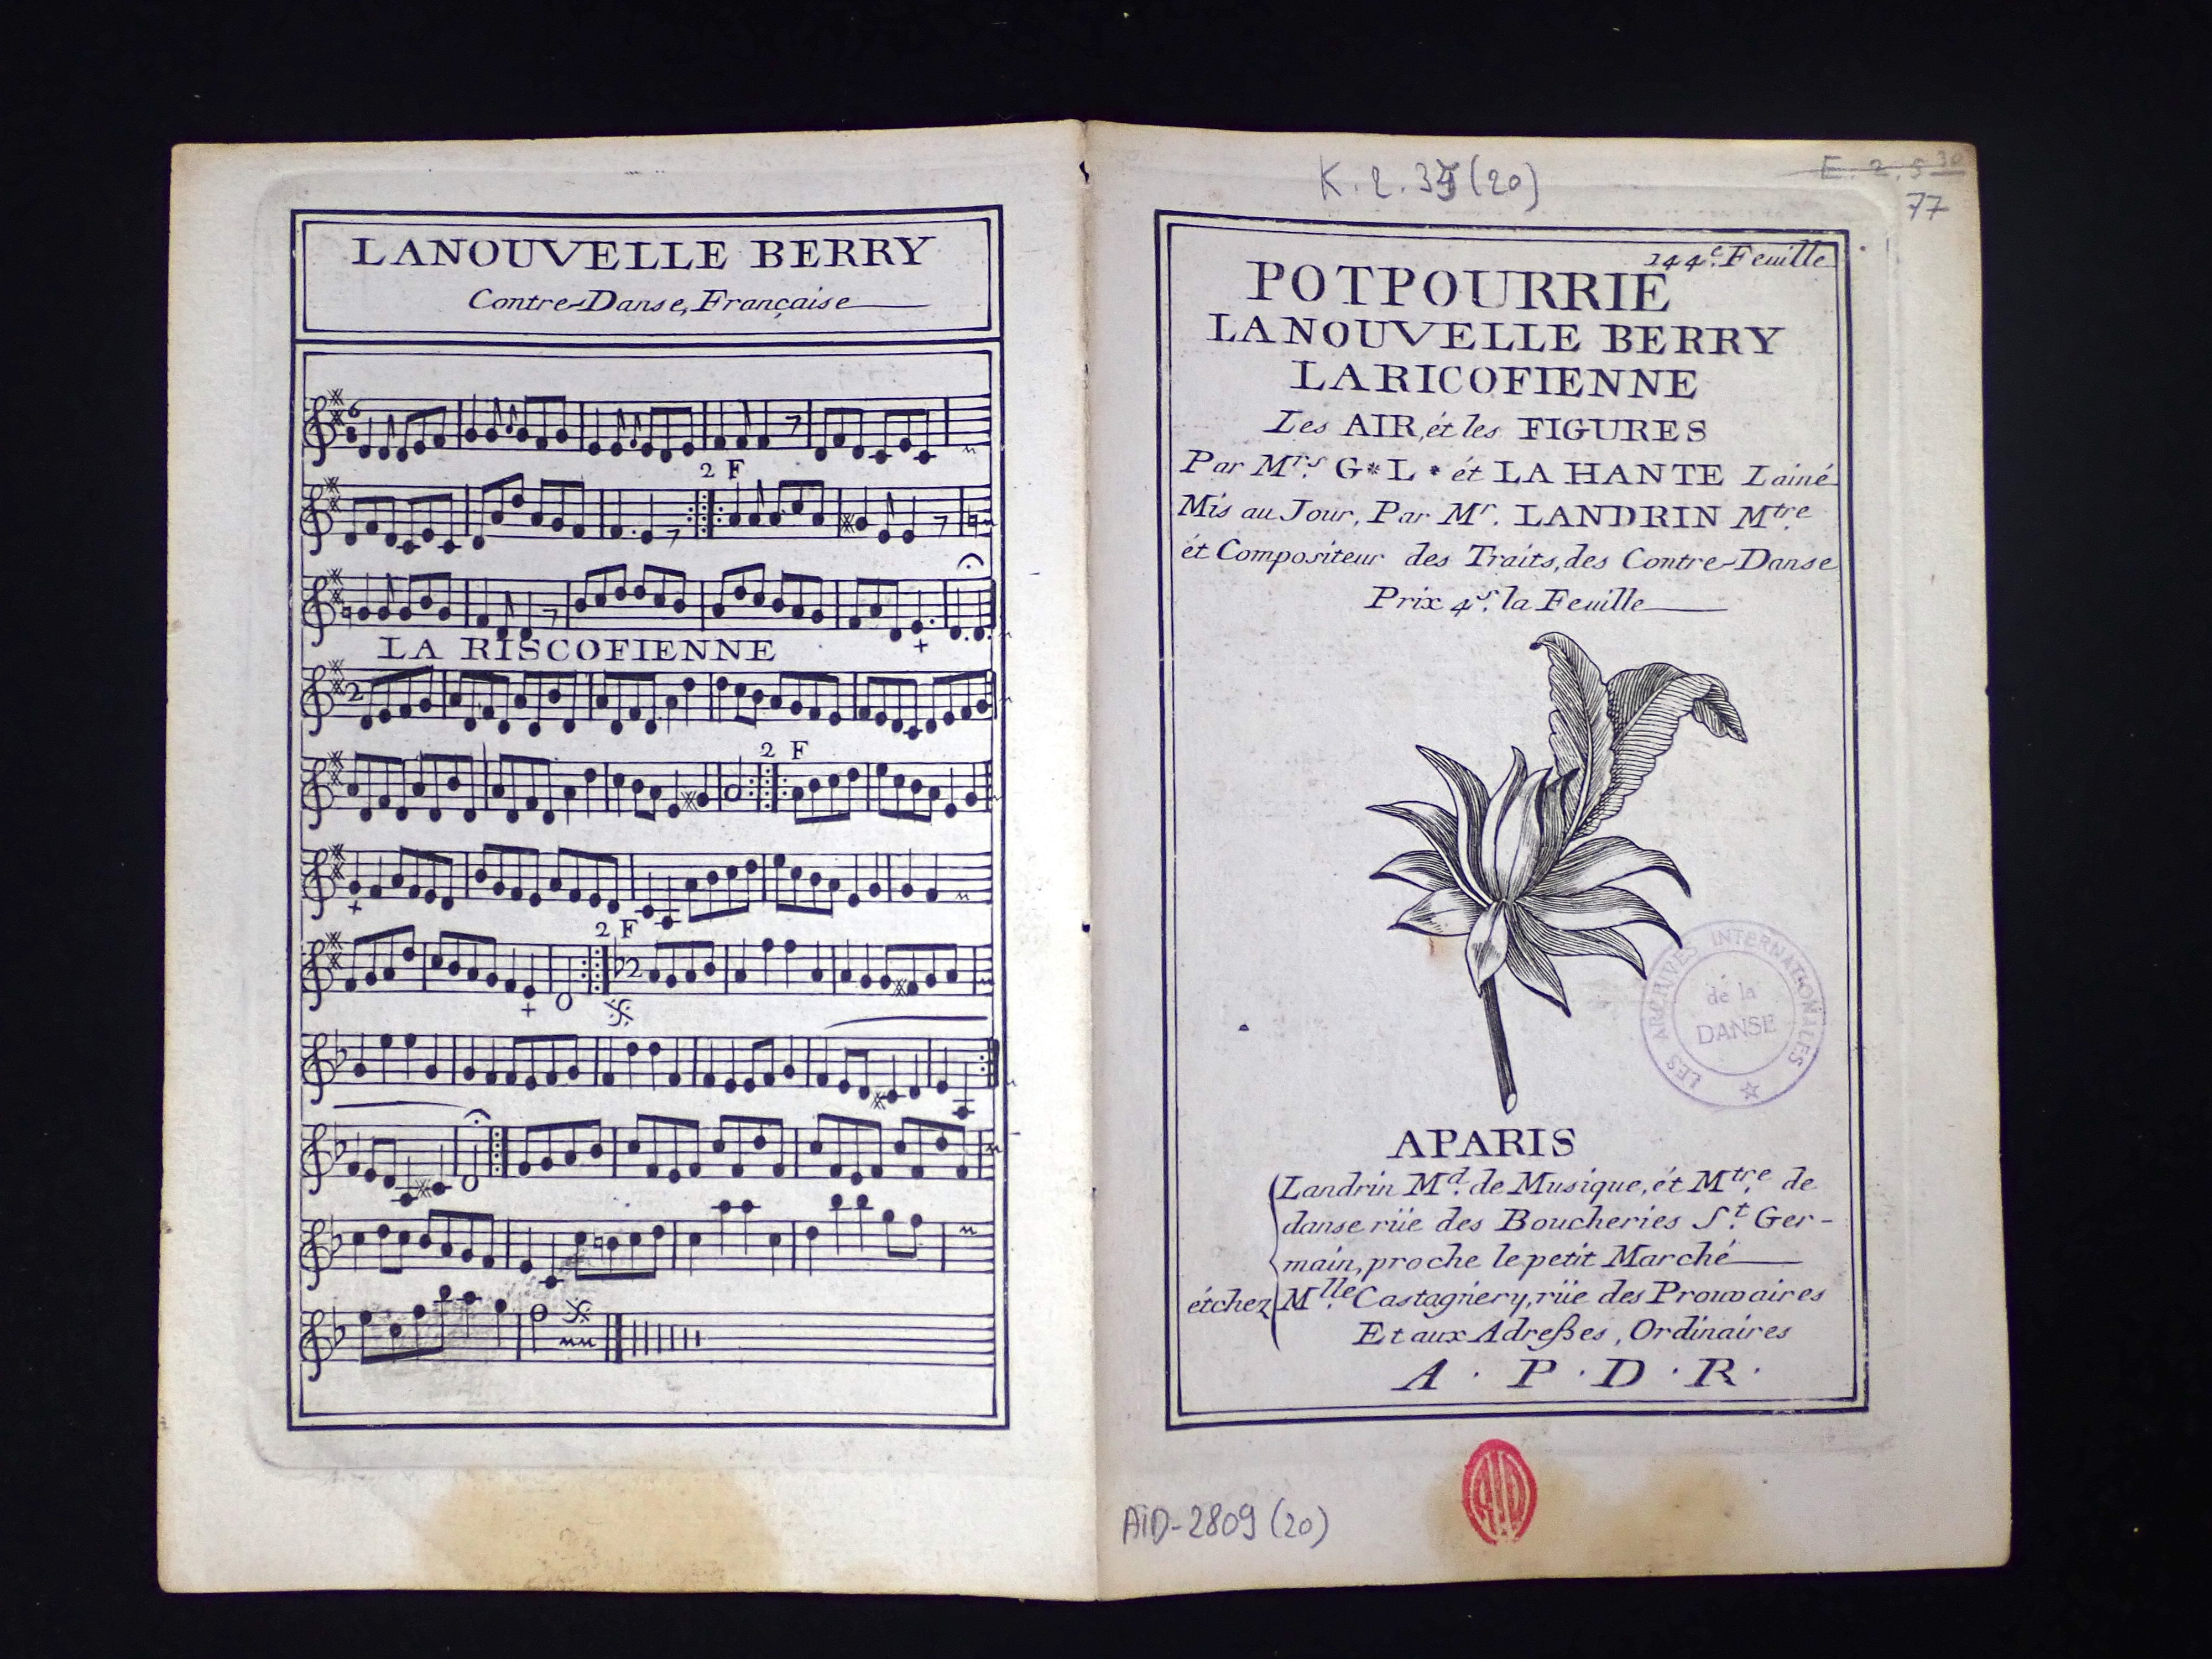 LANOUVELLE BERRY
Contre-Danse, Française
2 F
LA RISCOFIENNE
2 F
2 F
K. 2. 35 (20)
E. 2. 5 30
77
144.e Feuille
POTPOURRIE
LANOUVELLE BERRY
LARICOFIENNE
Les AIR, ét les FIGURES
Par M.rs G*L* ét LA HANTE Lainé
Mis au Jour, Par M.r LANDRIN M.tre
ét Compositeur des Traits, des Contre-Danse
Prix 4.s la Feuille
LES ARCHIVES INTERNATIONALES
de la
DANSE
APARIS
Landrin M.d de Musique, ét M.tre de
danse rüe des Boucheries S.t Ger-
main, proche le petit Marché
étchez M.lle Castagnery, rüe des Prouvaires
Et aux Adreßes, Ordinaires
A. P. D. R.
AID
AID-2809 (20)